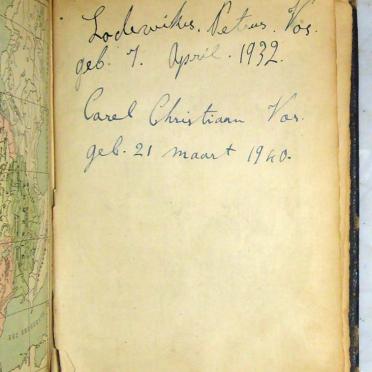 Lodewikus. Petrus. Vos.
geb. 7. April. 1932.
Carel Christiaan Vos.
geb. 21 maart 1940.